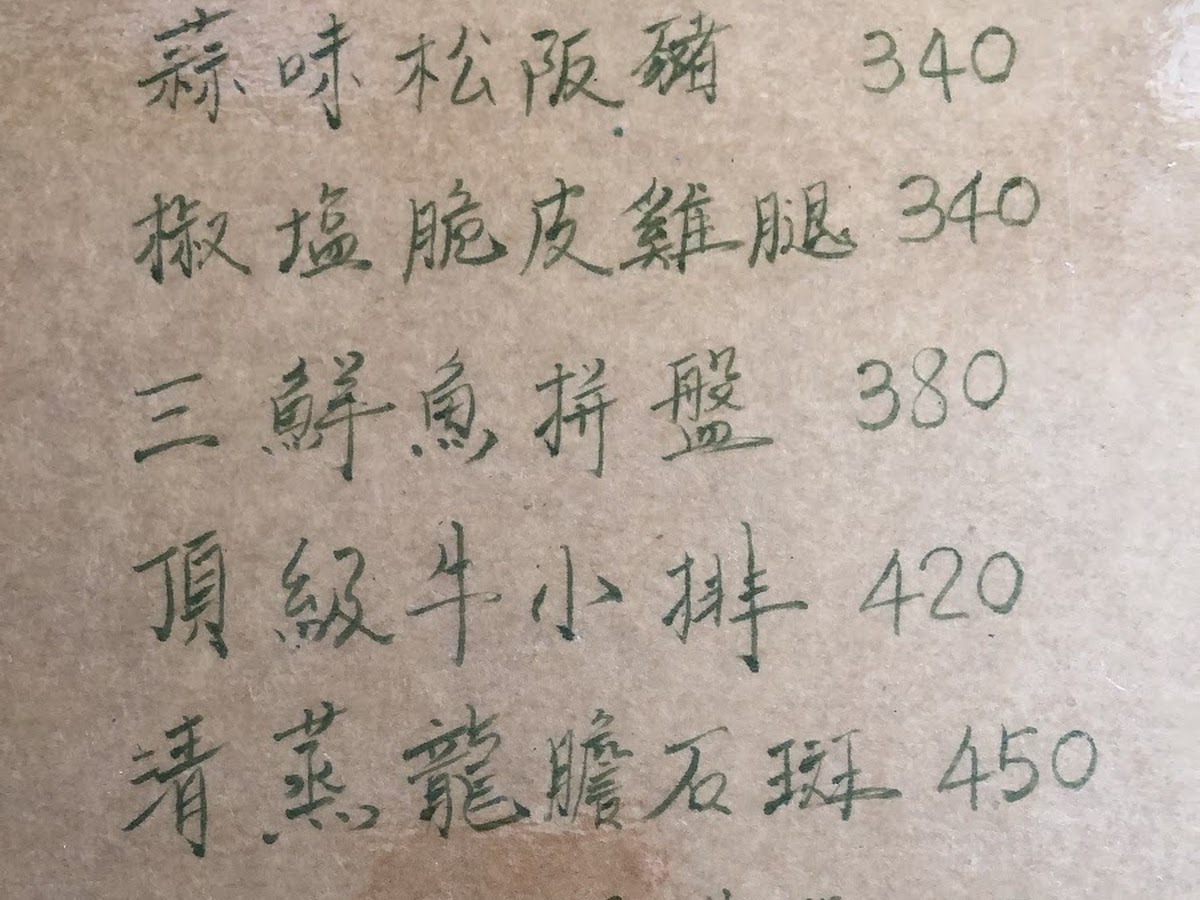 蒜味松阪豬 340
椒塩脆皮雞腿 340
三鮮魚拼盤 380
頂級牛小排 420
清蒸龍膽石斑 450